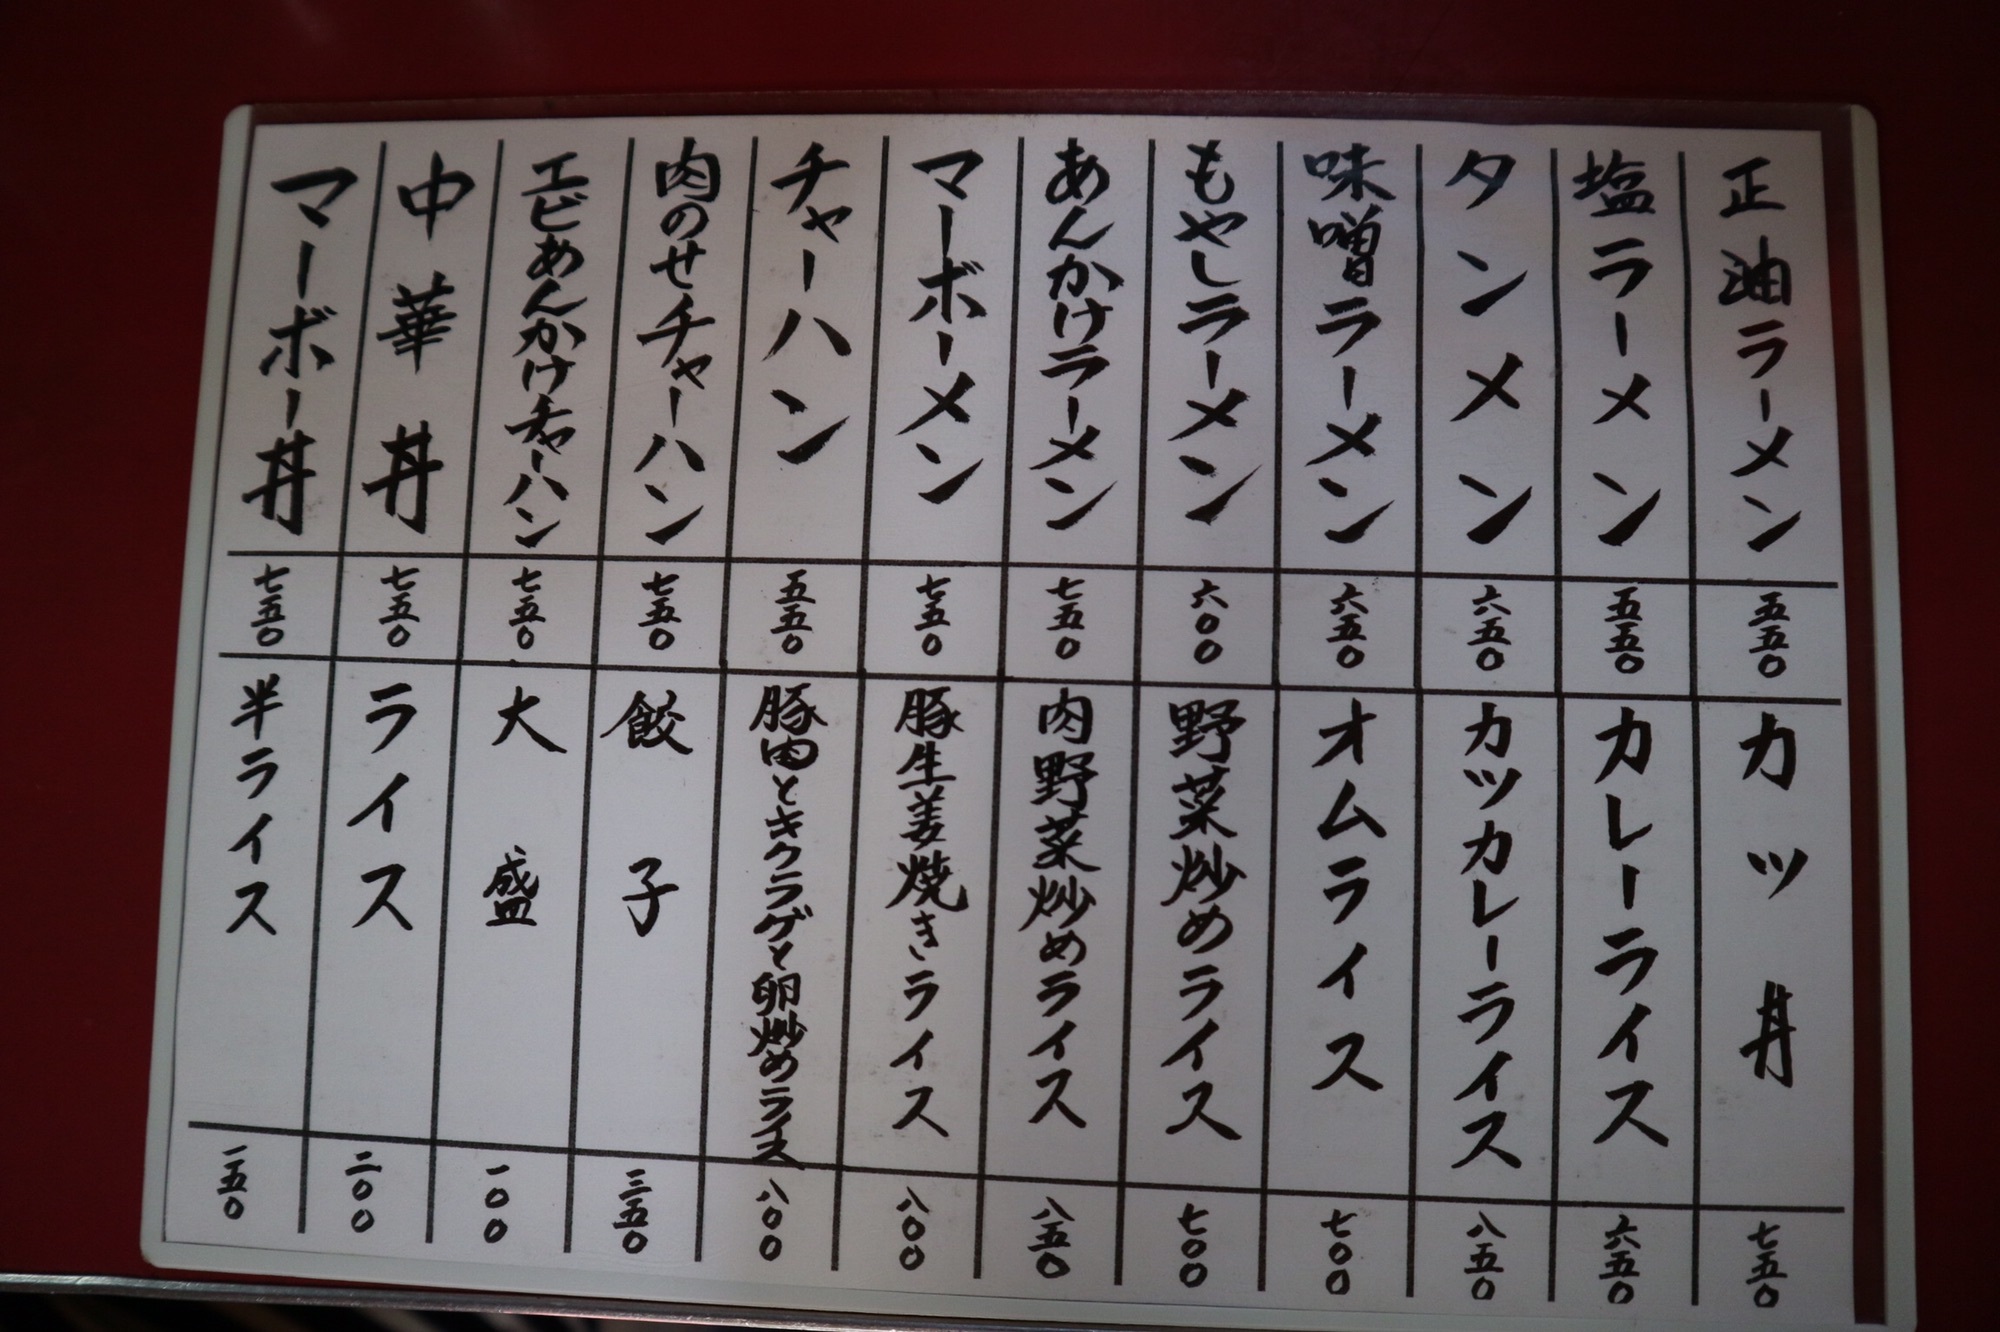 正油ラーメン 五五〇
塩ラーメン 五五〇
タンメン 六五〇
味噌ラーメン 六五〇
もやしラーメン 六〇〇
あんかけラーメン 七五〇
マーボーメン 七五〇
チャーハン 五五〇
肉のせチャーハン 七五〇
エビあんかけチャーハン 七五〇
中華丼 七五〇
マーボー丼 七五〇
カツ丼 七五〇
カレーライス 六五〇
カツカレーライス 八五〇
オムライス 七〇〇
野菜炒めライス 七〇〇
肉野菜炒めライス 八五〇
豚生姜焼きライス 八〇〇
豚肉とキクラゲと卵炒めライス 八〇〇
餃子 三五〇
大盛 一〇〇
ライス 二〇〇
半ライス 一五〇